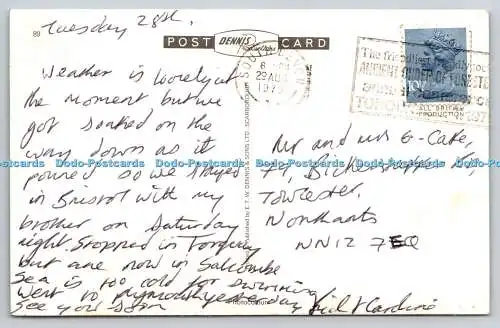 89
Tuesday 28th.
POST DENNIS Productions CARD
Weather is lovely at
the moment but we
got soaked on the
way down as it
poured so we stayed
in Bristol with my
brother on Saturday
night. Stopped in Torquay
but are now in Salcombe
Sea is too cold for swimming
Went to Plymouth yesterday
See you soon
Published by E.T.W. DENNIS & SONS LTD. SCARBOROUGH
SOUTH DEVON
29 AUG
1979
The friendliest
ANCIENT ORDER OF FORESTERS
10½P
ALL BRITISH
PRODUCTION
Mr and Mrs G. Cake,
Towcester,
Northants
NN12 7
& Caroline
PHOTOCOLOUR
Dodo-Postcards Dodo-Postcards Dodo-Postcards Dodo-Postcards